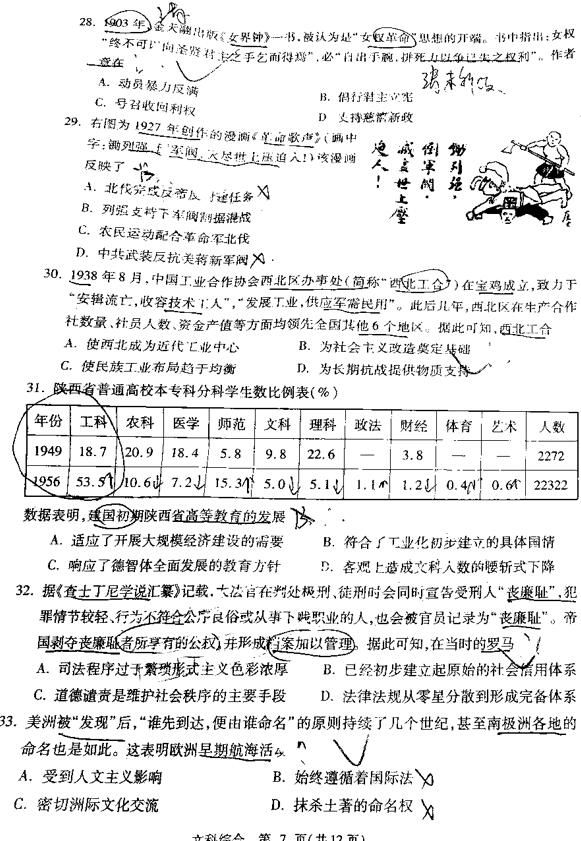 28. 1903 年,金天翮出版《女界钟》一书,被认为是“女权革命”思想的开端。书中指出:女权
“终不可以向圣贤君主之手乞而得焉”,必“自出手腕,拼死力以争已失之权利”。作者
意在
A. 动员暴力反满
B. 倡行君主立宪
C. 号召收回利权
D. 支持慈禧新政
29. 右图为 1927 年创作的漫画《革命歌声》(画中
字:锄列强,倒军阀,灭尽世上压迫人!)该漫画
反映了
A. 北伐完成反帝反封建任务
B. 列强支持下军阀割据混战
C. 农民运动配合革命军北伐
D. 中共武装反抗美蒋新军阀
锄列强,
倒軍閥,
滅盡世上壓
迫人!
30. 1938 年 8 月,中国工业合作协会西北区办事处(简称“西北工合”)在宝鸡成立,致力于
“安辑流亡,收容技术工人”,“发展工业,供应军需民用”。此后几年,西北区在生产合作
社数量、社员人数、资金产值等方面均领先全国其他 6 个地区。据此可知,西北工合
A. 使西北成为近代工业中心
B. 为社会主义改造奠定基础
C. 使民族工业布局趋于均衡
D. 为长期抗战提供物质支持
31. 陕西省普通高校本专科分科学生数比例表(%)
年份 工科 农科 医学 师范 文科 理科 政法 财经 体育 艺术 人数
1949 18.7 20.9 18.4 5.8 9.8 22.6 — 3.8 — — 2272
1956 53.5 10.6 7.2 15.3 5.0 5.1 1.1 1.2 0.4 0.6 22322
数据表明,建国初期陕西省高等教育的发展
A. 适应了开展大规模经济建设的需要
B. 符合了工业化初步建立的具体国情
C. 响应了德智体全面发展的教育方针
D. 客观上造成文科人数的腰斩式下降
32. 据《查士丁尼学说汇纂》记载,大法官在判处极刑、徒刑时会同时宣告受刑人“丧廉耻”,犯
罪情节较轻、行为不符合公序良俗或从事下贱职业的人,也会被官员记录为“丧廉耻”。帝
国剥夺丧廉耻者所享有的公权,并形成档案加以管理。据此可知,在当时的罗马
A. 司法程序过于繁琐形式主义色彩浓厚
B. 已经初步建立起原始的社会信用体系
C. 道德谴责是维护社会秩序的主要手段
D. 法律法规从零星分散到形成完备体系
33. 美洲被“发现”后,“谁先到达,便由谁命名”的原则持续了几个世纪,甚至南极洲各地的
命名也是如此。这表明欧洲早期航海活动
A. 受到人文主义影响
B. 始终遵循着国际法
C. 密切洲际文化交流
D. 抹杀土著的命名权
文科综合 第 7 页(共12页)